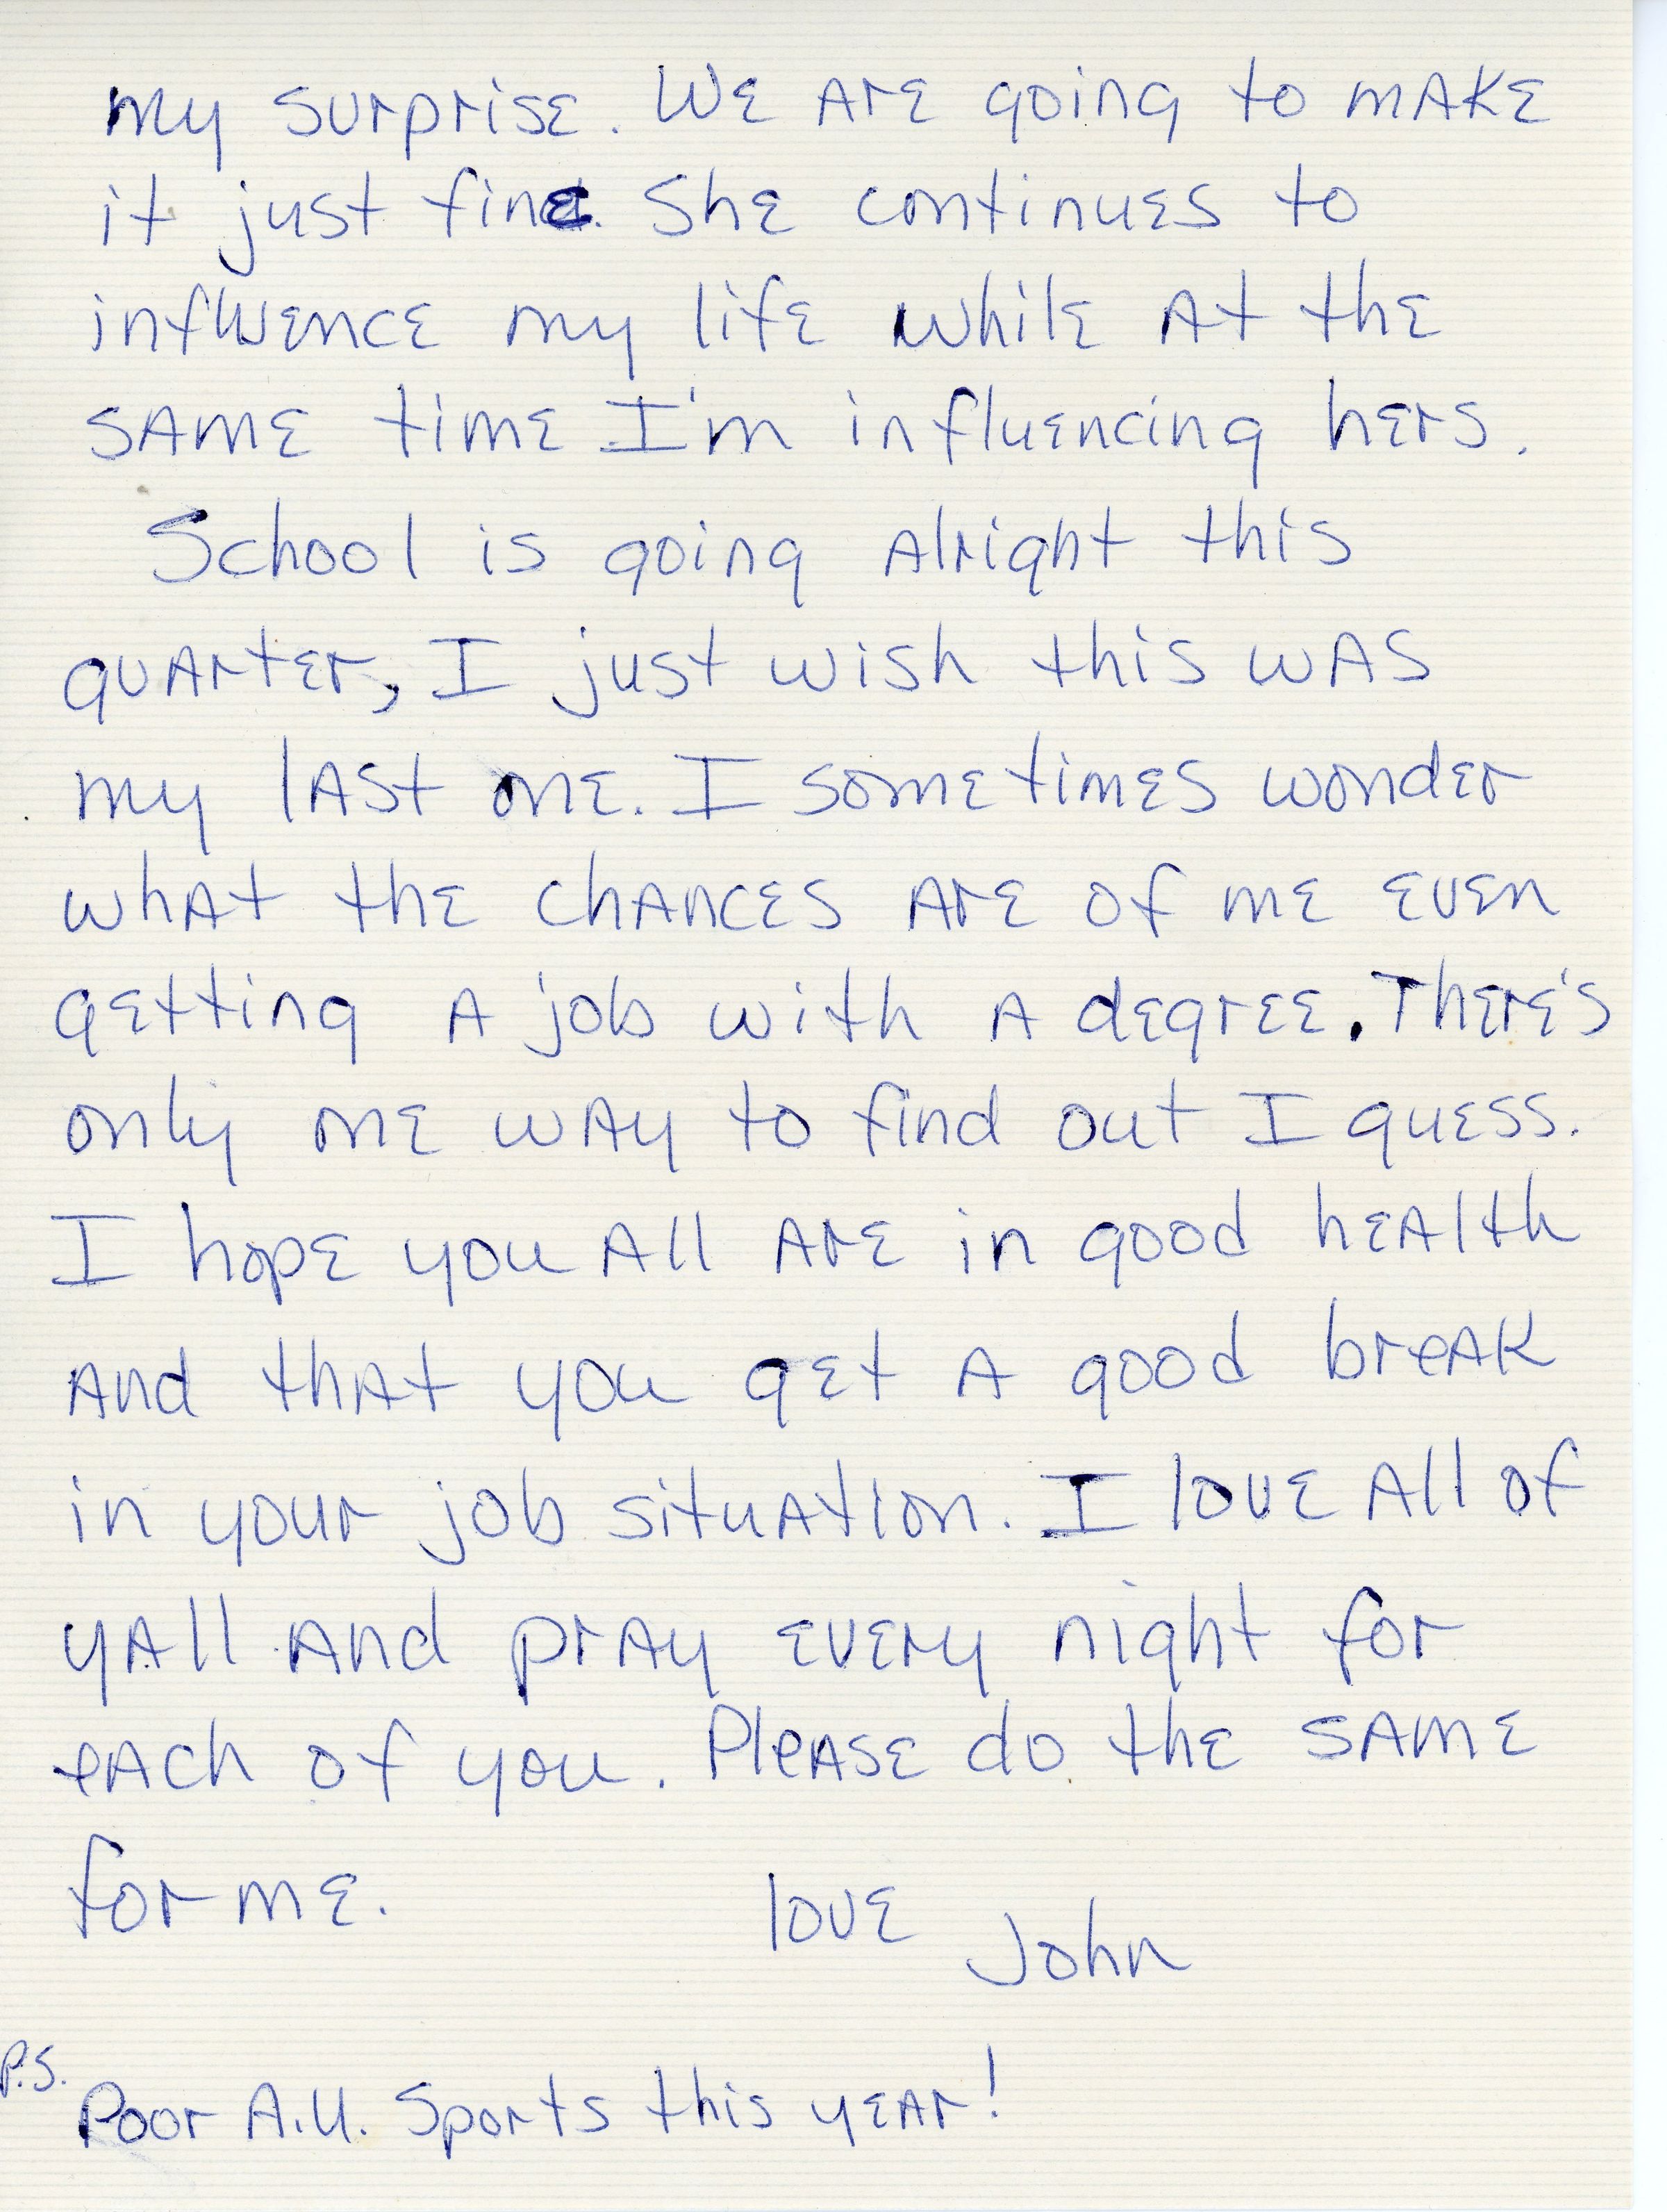 my surprise. We are going to make
it just fine. She continues to
influence my life while at the
same time I'm influencing hers.
School is going alright this
quarter, I just wish this was
my last one. I sometimes wonder
what the chances are of me even
getting a job with a degree. There's
only one way to find out I guess.
I hope you all are in good health
and that you get a good break
in your job situation. I love all of
yall and pray every night for
each of you. Please do the same
for me. love John
P.S. Poor A.U. Sports this year!